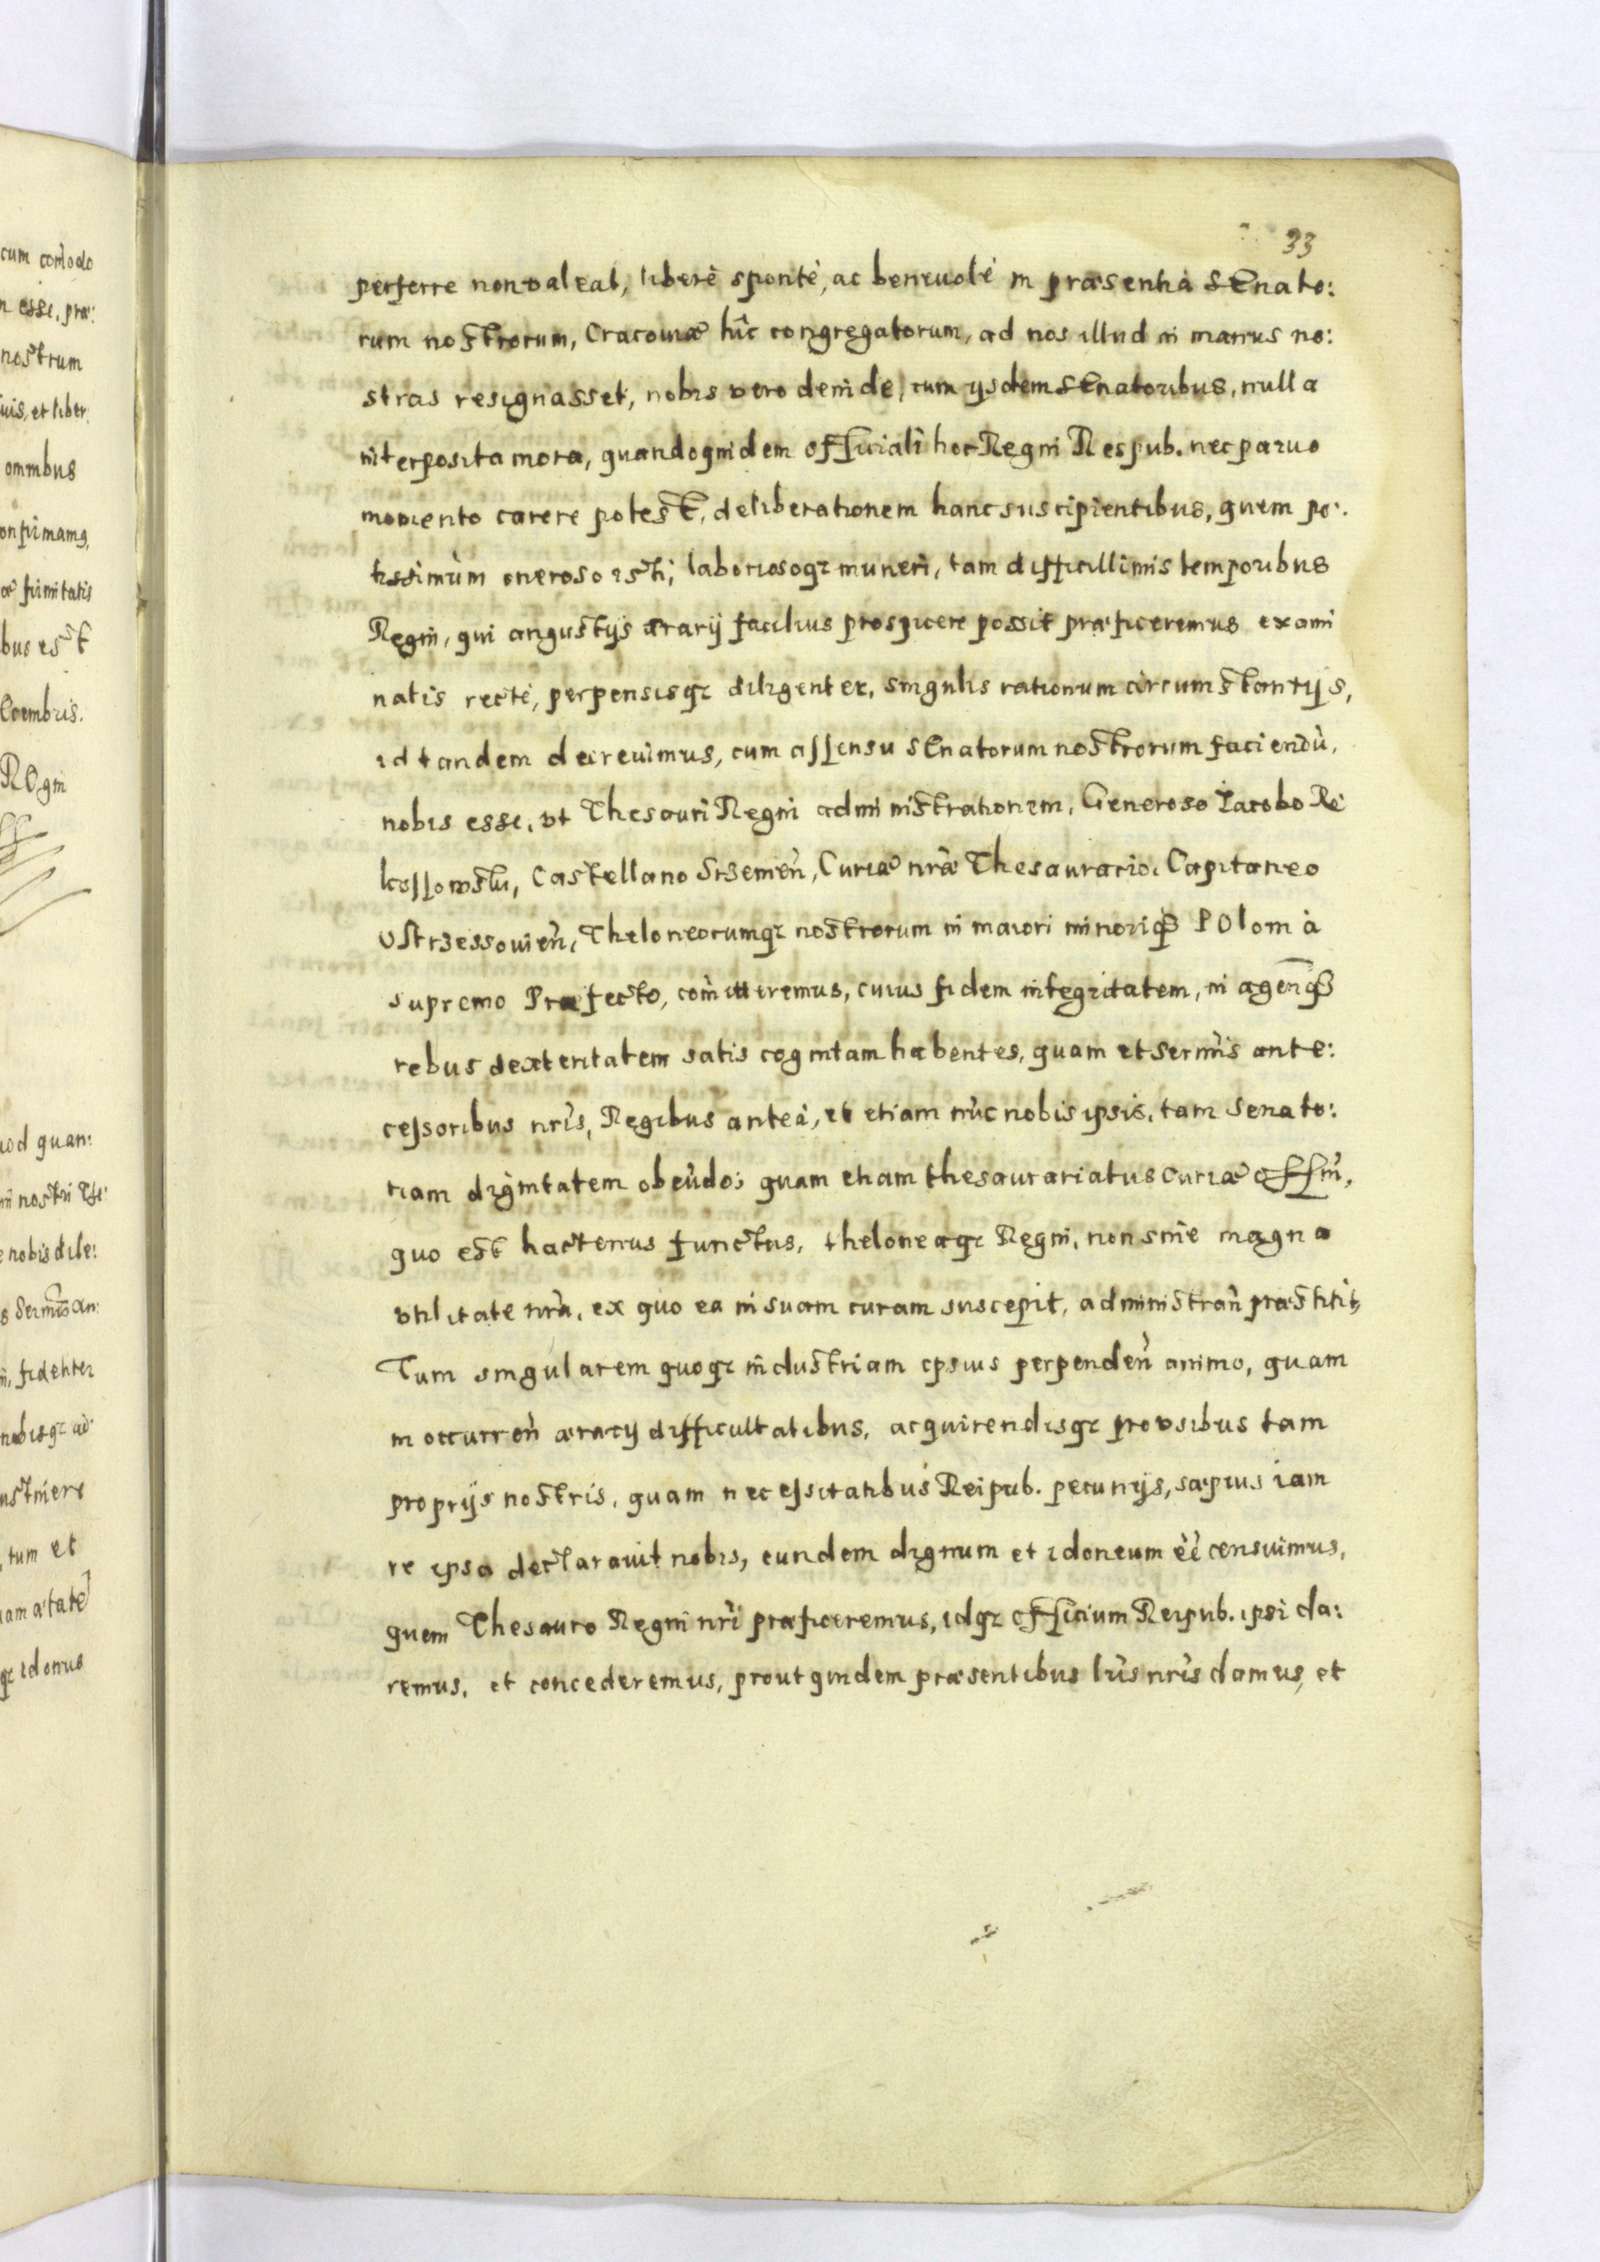 33
perferre non valeat, liberè spontè, ac beneuolè in præsentia SEnato:
rum nostrorum, Cracouiæ hîc congregatorum, ad nos illud in manus no:
stras resignasset, nobis vero deinde, cum ysdem SEnatoribus, nulla
interposita mora, quandoquidem officiali hoc Regni Respub. nec paruo
momento carere potest, deliberationem hanc suscipientibus, quem po:
tissimùm oneroso isti, laboriosoq₃ muneri, tam difficillimis temporibus
Regni, qui angustijs ærarij facilius prospicere possit præficeremus exami
natis rectè, perpensisq₃ diligenter, singulis rationum circumstantijs,
id tandem decreuimus, cum assensu SEnatorum nostrorum faciendū,
nobis esse, vt Thesauri Regni administrationem, Generoso Iacobo Ro
kossowski, Castellano Srzemeñ, Curiæ nræ Thesaurario, Capitaneo
OStrzessouieñ, Theloneorumq₃ nostrorum in maiori minoriq₃ POlonia
supremo Præfecto, com̃itteremus, cuius fidem integritatem, in agendis
rebus dexteritatem satis cognitam habentes, quam et Sermis ante:
cessoribus nris, Regibus anteà, et etiam nũc nobis ipsis, tam Senato:
riam dignitatem obeũdo, quam etiam thesaurariatus Curiæ offim̃,
quo est hactenus functus, theloneaq₃ Regni, non sine magna
vtilitate nra, ex quo ea in suam curam suscepit, administrañ præstitit,
Tum singularem quoq₃ industriam ipsius perpendeñ animo, quam
in occurreñ ærarij difficultatibus, acquirendisq₃ pro vsibus tam
proprijs nostris, quam necessitatibus Reipub. pecunijs, sæpius iam
re ipsa declarauit nobis, eundem dignum et idoneum ẽẽ censuimus,
quem Thesauro Regni nri præficeremus, idq₃ officium Reipub. ipsi da:
remus, et concederemus, prout quidem præsentibus lris nris damus, et
cum com̃odo
n esse, præ:
nostrum
suis, et liber
omnibus
onfirmamus,
æ firmitatis
bus est
cembris.
REgni
uod quan:
ni nostri The
e nobis dile:
s Sermis an:
fidenter
nobisq₃ ad
ustinere
, tum et
iam ætate
q₃ idoneus